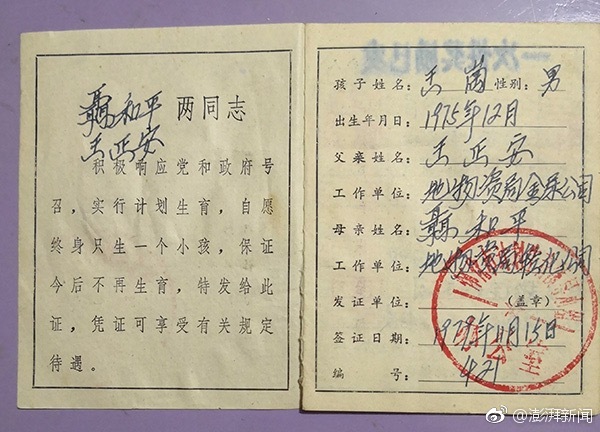 聶和平 两同志
王正安
积极响应党和政府号
召，实行计划生育，自愿
终身只生一个小孩，保证
今后不再生育，特发给此
证，凭证可享受有关规定
待遇。
孩子姓名：王茜 性别：男
出生年月日：1975年12月
父亲姓名：王正安
工作单位：地物资局金属公司
母亲姓名：聶和平
工作单位：地物资局轻化公司
发证单位：（盖章）
签证日期：1979年11月15日
编号：421
@澎湃新闻